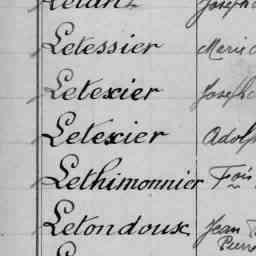 Letessier Marie
Letexier Joseph
Letexier Adolp
Lethimonnier Fois
Letondoux Jean
Pierre